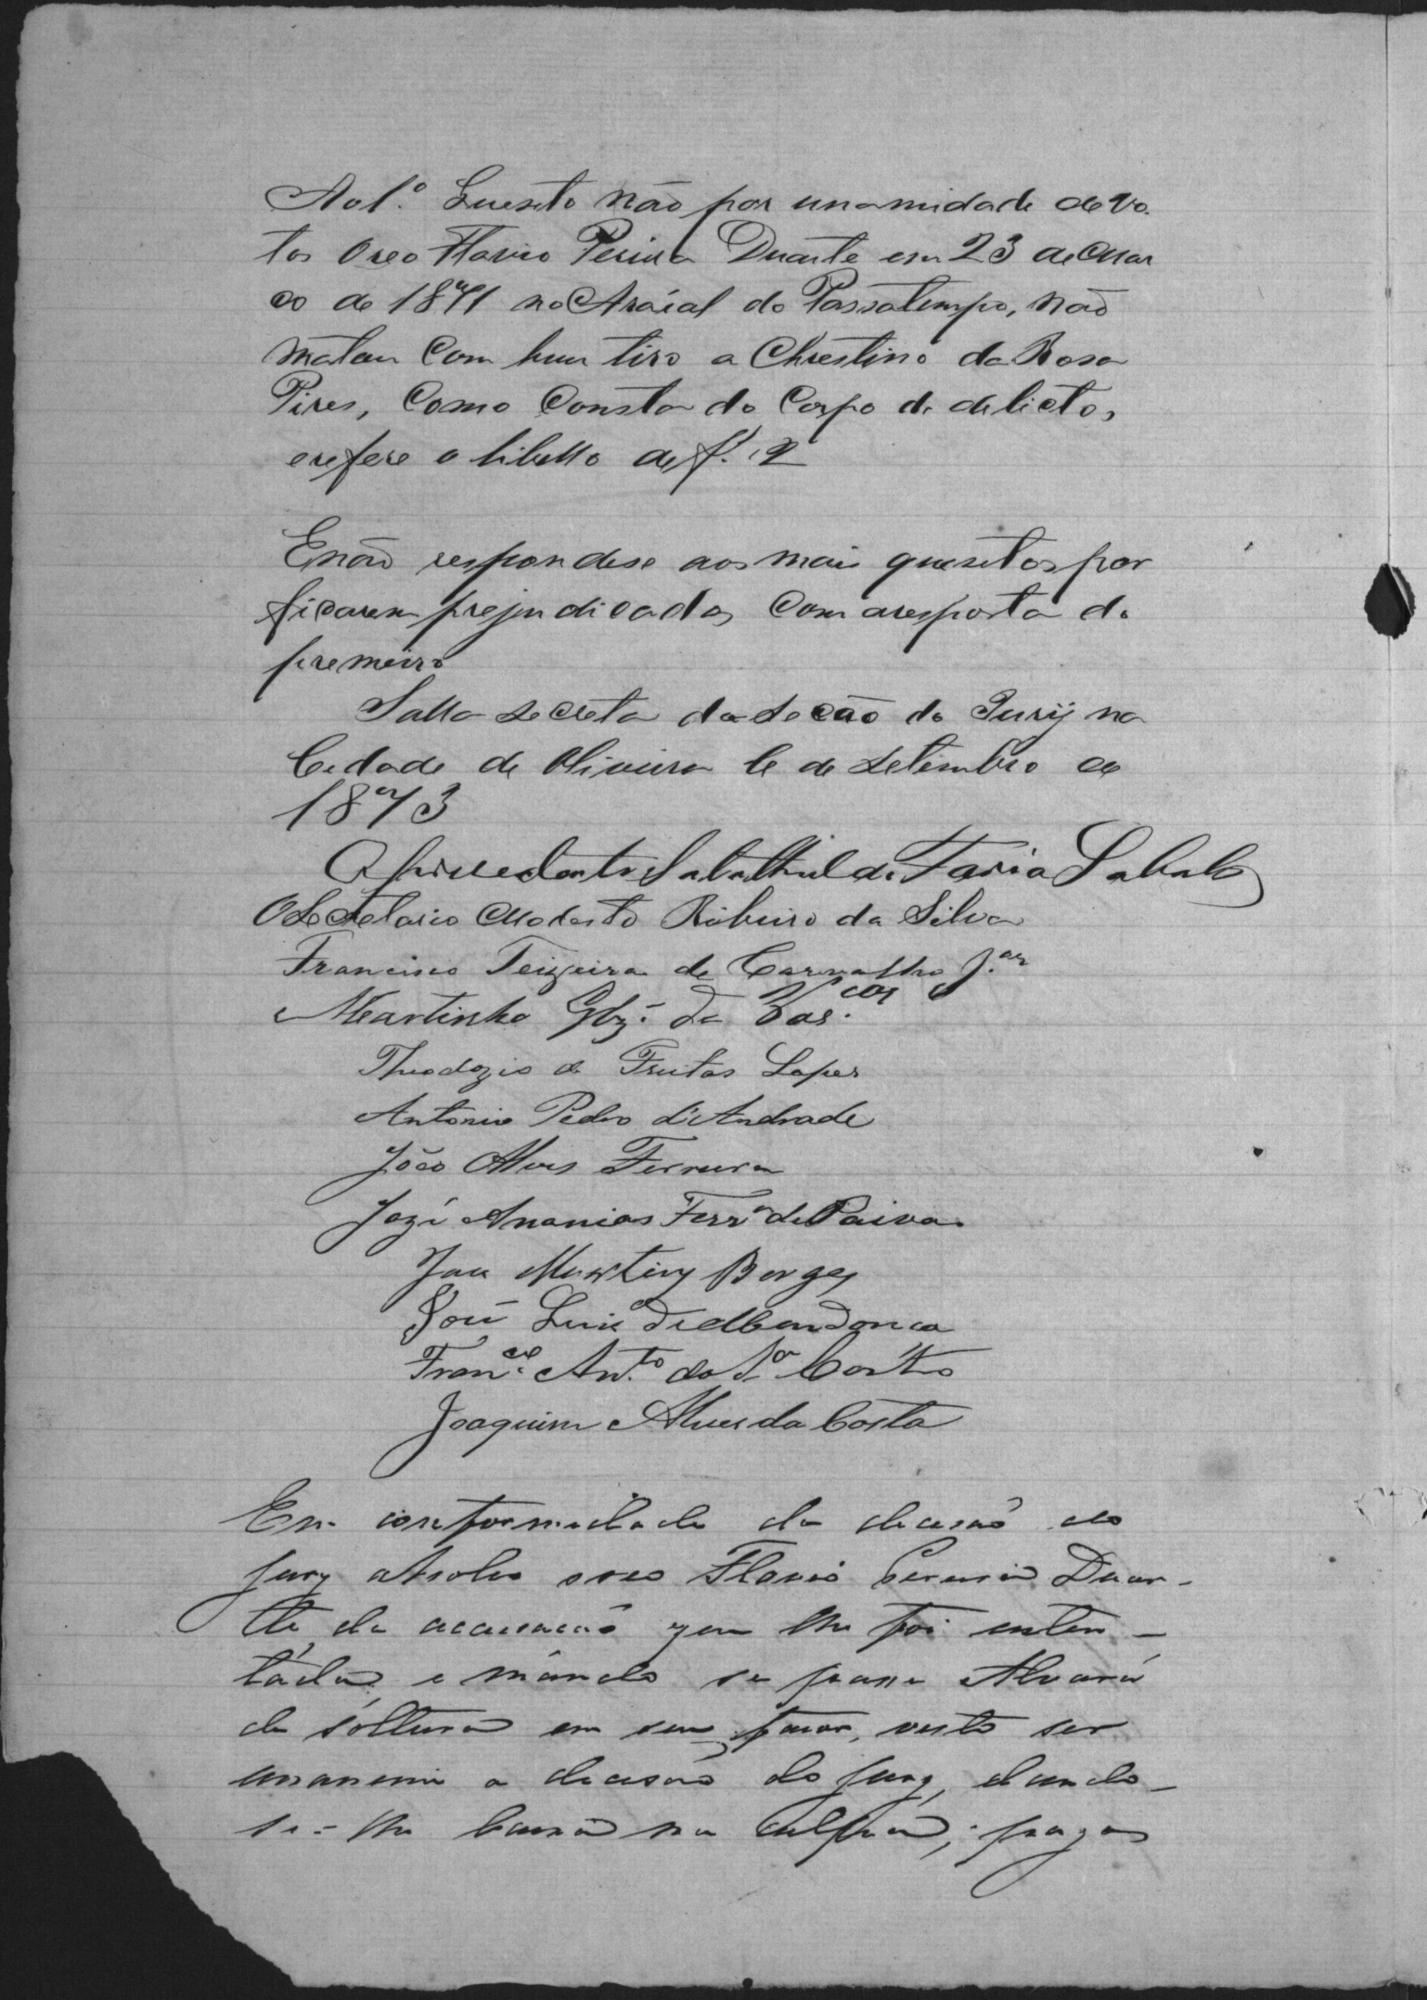 Ao 1.º Quesito não por unamidade de vo
tos O reo Flavio Pereira Duarte em 23 de Mar
co de 1871 no Araial do Passatempo, não
matou com hum tiro a Chrestino da Rosa
Pires, como consta do Corpo de delicto,
e refere o libello de f. 2
E não respondese aos mais quesitos por
ficarem prejudicados com a resposta do
premeiro
Salla secreta da secão do Jury na
Cidade de Oliveira 6 de Setembro de
1873
O Prisedente de Faria Lobato
O Secretario Modesto Ribeiro da Silva
Francisco Teixeira de Carvalho J.or
Martinho Glz. de Vas.cos
Theodozio de Freitas Lopes
Antonio Pedro d'Andrade
João Alves Ferreira
Jozé Ananias Ferr.a de Paiva
Martins Borges
José Luis de Mendonca
Fran.co Ant.o da S.a Castro
Joaquim Alves da Costa
Em conformidade da decisão do
Jury absolvo o reo Flavio Pereira Duar-
te da accusacão que lhe foi inten-
tada e mando se passe Alvará
de soltura em seu favor, visto ser
unanime a decisão do Jury, dando-
se-lhe baixa na culpa; pagas